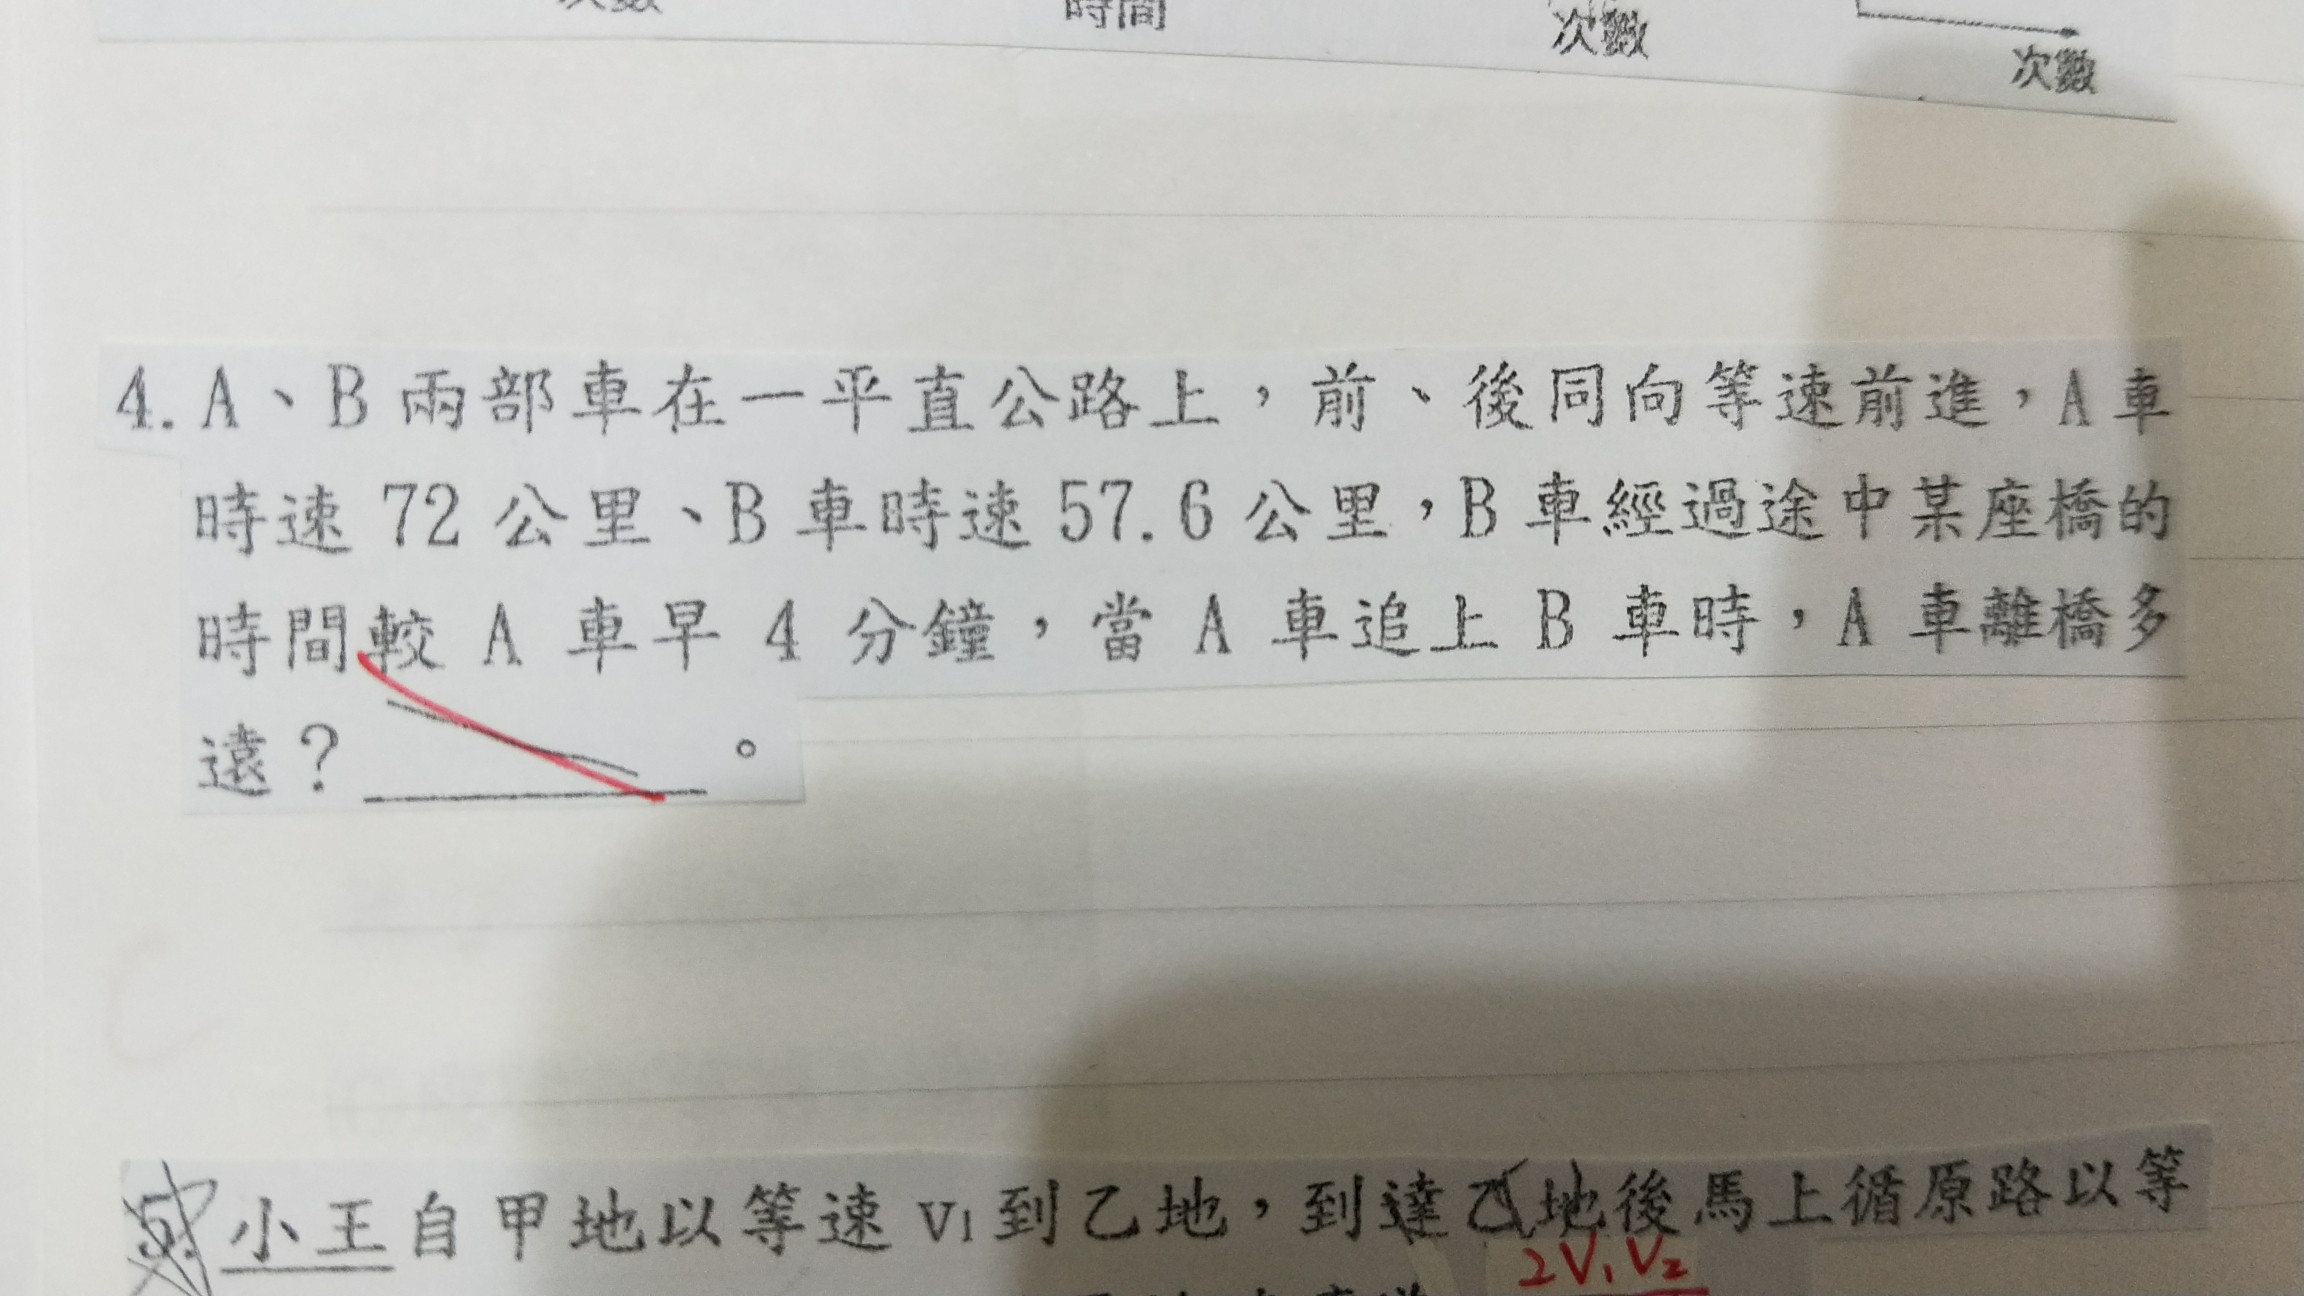 次數
時間
次數
次數
4. A、B 兩部車在一平直公路上，前、後同向等速前進，A 車
時速 72 公里、B 車時速 57.6 公里，B 車經過途中某座橋的
時間較 A 車早 4 分鐘，當 A 車追上 B 車時，A 車離橋多
遠？________。
5. 小王自甲地以等速 v₁到乙地，到達乙地後馬上循原路以等
2V₁V₂